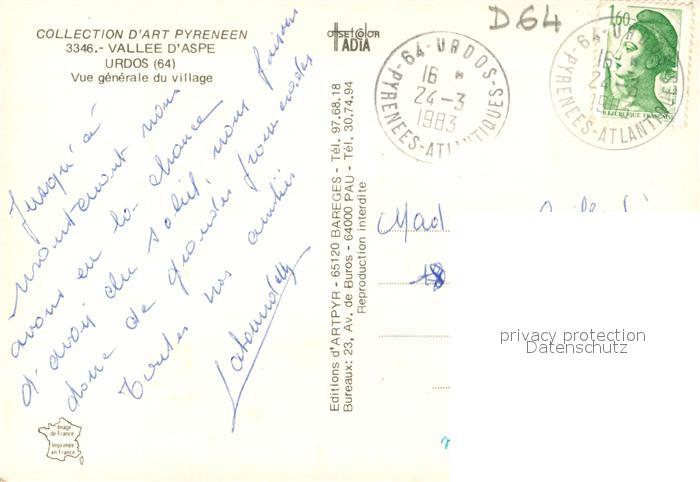 COLLECTION D'ART PYRENEEN
3346.- VALLEE D'ASPE
URDOS (64)
Vue générale du village
OFFSETCOLOR
TADIA
D64
64-URDOS-
PYRENEES-ATLANTIQUES
16 H
24-3
1983
1,60
REPUBLIQUE FRANCAISE
Jusqu'à
maintenant nous
avons eu la chance
d'avoir du soleil, nous faisons
donc de grandes promenades
Toutes nos amitiés
Editions d'ARTPYR - 65120 BAREGES - Tél. 97.68.18
Bureaux: 23, Av. de Buros - 64000 PAU - Tél. 30.74.94
Reproduction interdite
Mad
privacy protection
Datenschutz
Image
de France
Imprimée
en France